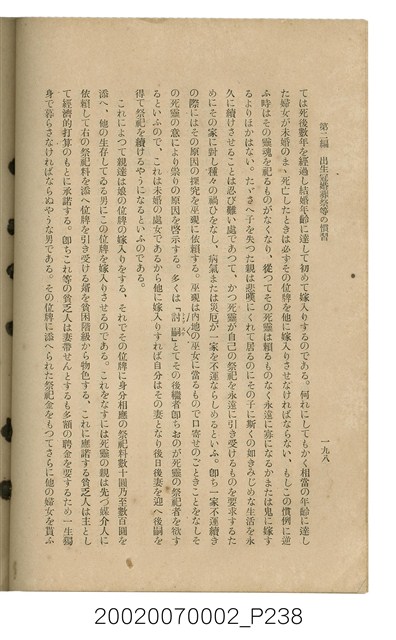 第二編　出生冠婚葬祭等の慣習
一九八
ては死後數年を經過し結婚年齡に達して初めて嫁入りするのである。何れにしてもかく相當の年齡に達し
た婦女が未婚のまゝ死亡したときは必すその位牌を他に嫁入りさせなければならない、もしこの慣例に逆
ふ時はその靈魂を祀るものがなくなり、從つてその死靈は賴るものなく永遠に寡になるかまたは鬼に嫁す
るよりほかはない。たゞさへ子を失つた親は悲嘆にくれて居るのにその子に斯くの如きみじめな生活を永
久に續けさせることは忍び難い處であつて、かつ死靈が自己の祭祀を永遠に引き受けるものを要求するた
めにその家に對し種々の禍ひをなし、病氣または災厄が一家を不運ならしめるといふ。卽ち一家不運續き
の際にはその原因の探究を巫覡に依賴する。巫覡は內地の巫女に當るもので口寄せのごときことをなしそ
の死靈の意により祟りの原因を啓示する。多くは「討嗣」とてその後繼者卽ちおのが死靈の祭祀者を欲す
るといふので、これは未婚の處女であるから他に嫁入りすれば自分はその妻となり後日後妻を迎へ後嗣を
得て祭祀を續けるやうになるといふのである。
これによつて親達は娘の位牌の嫁入りをする、それでその位牌に身分相應の祭祀料數十圓乃至數百圓を
添へ、他の生存してゐる男にこの位牌を嫁入りさせるのである。これをなすには死靈の親は先づ媒介人に
依賴して右の祭祀料を添へ位牌を引き受ける婿を貧困階級から物色する、これに應諾する貧乏人は主とし
て經濟的打算のもとに承諾する。卽ちこれ等の貧乏人は妻帶せんとするも多額の聘金を要するため一生獨
身で暮らさなければならぬやうな男である。その位牌に添へられた祭祀金をもつてさらに他の婦女を貰ふ
20020070002_P238